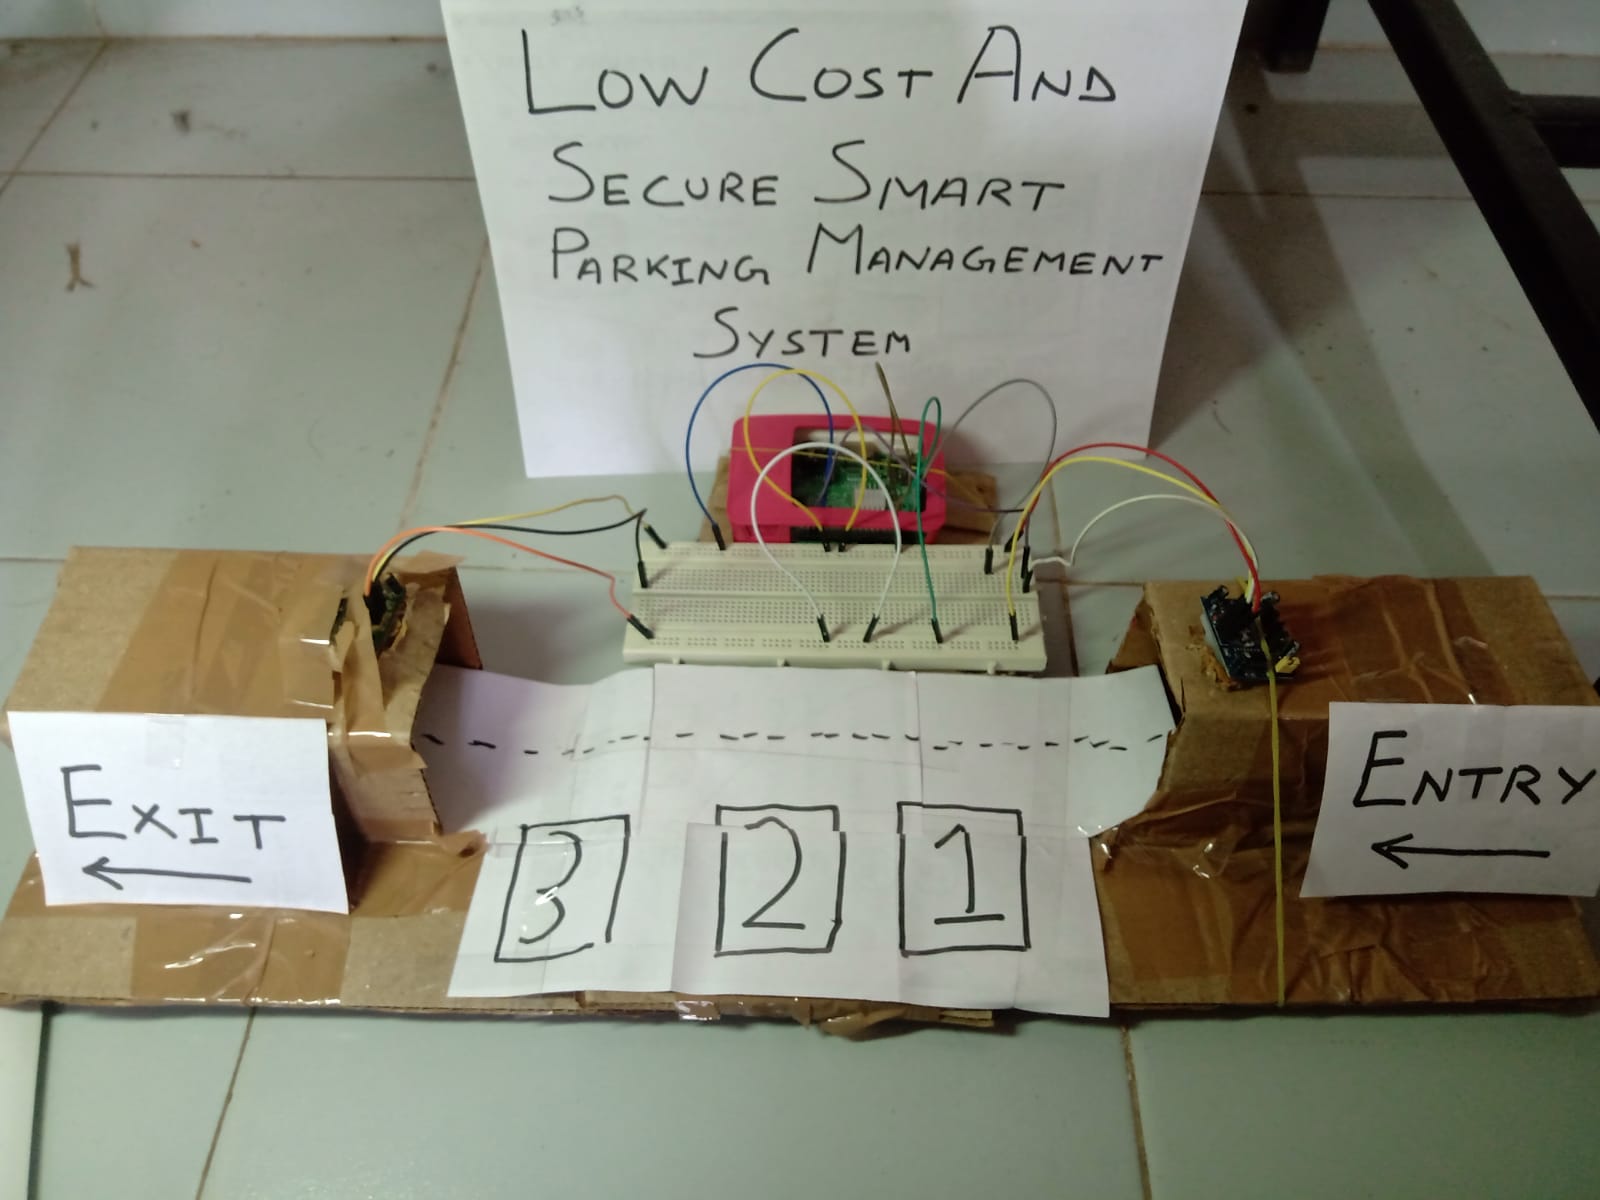 LOW COST AND
SECURE SMART
PARKING MANAGEMENT
SYSTEM
EXIT
ENTRY
3 2 1